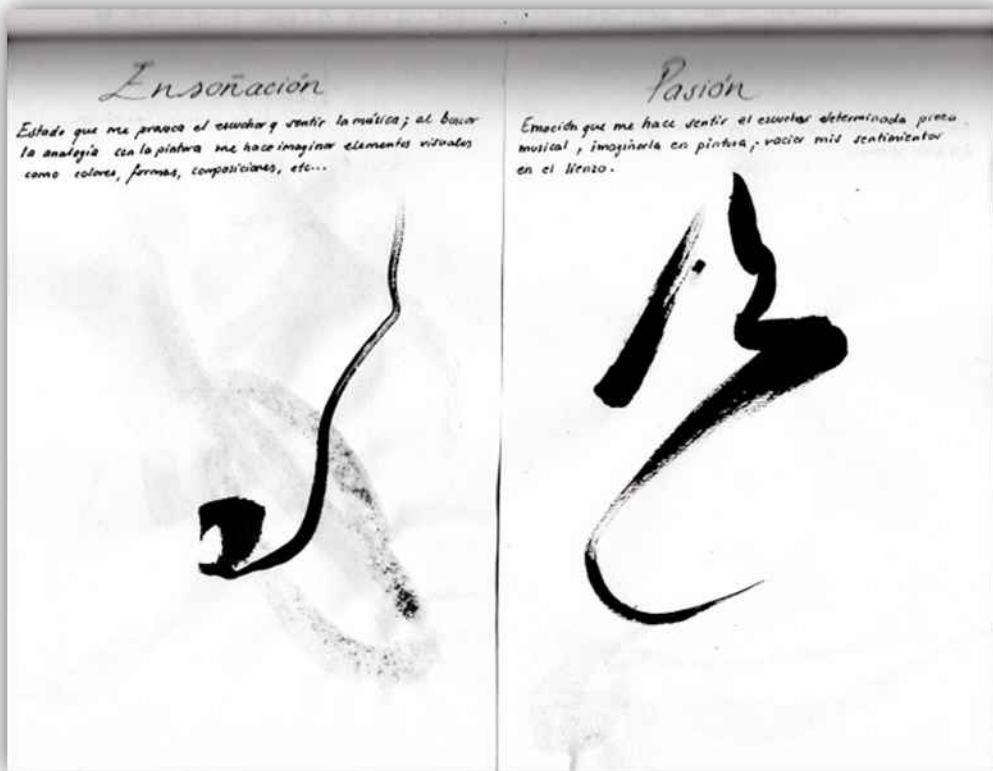 Ensoñación
Estado que me provoca el escuchar y sentir la música; al buscar
la analogía con la pintura me hace imaginar elementos visuales
como colores, formas, composiciones, etc...
Pasión
Emoción que me hace sentir el escuchar determinada pieza
musical, imaginarla en pintura, vaciar mis sentimientos
en el lienzo.